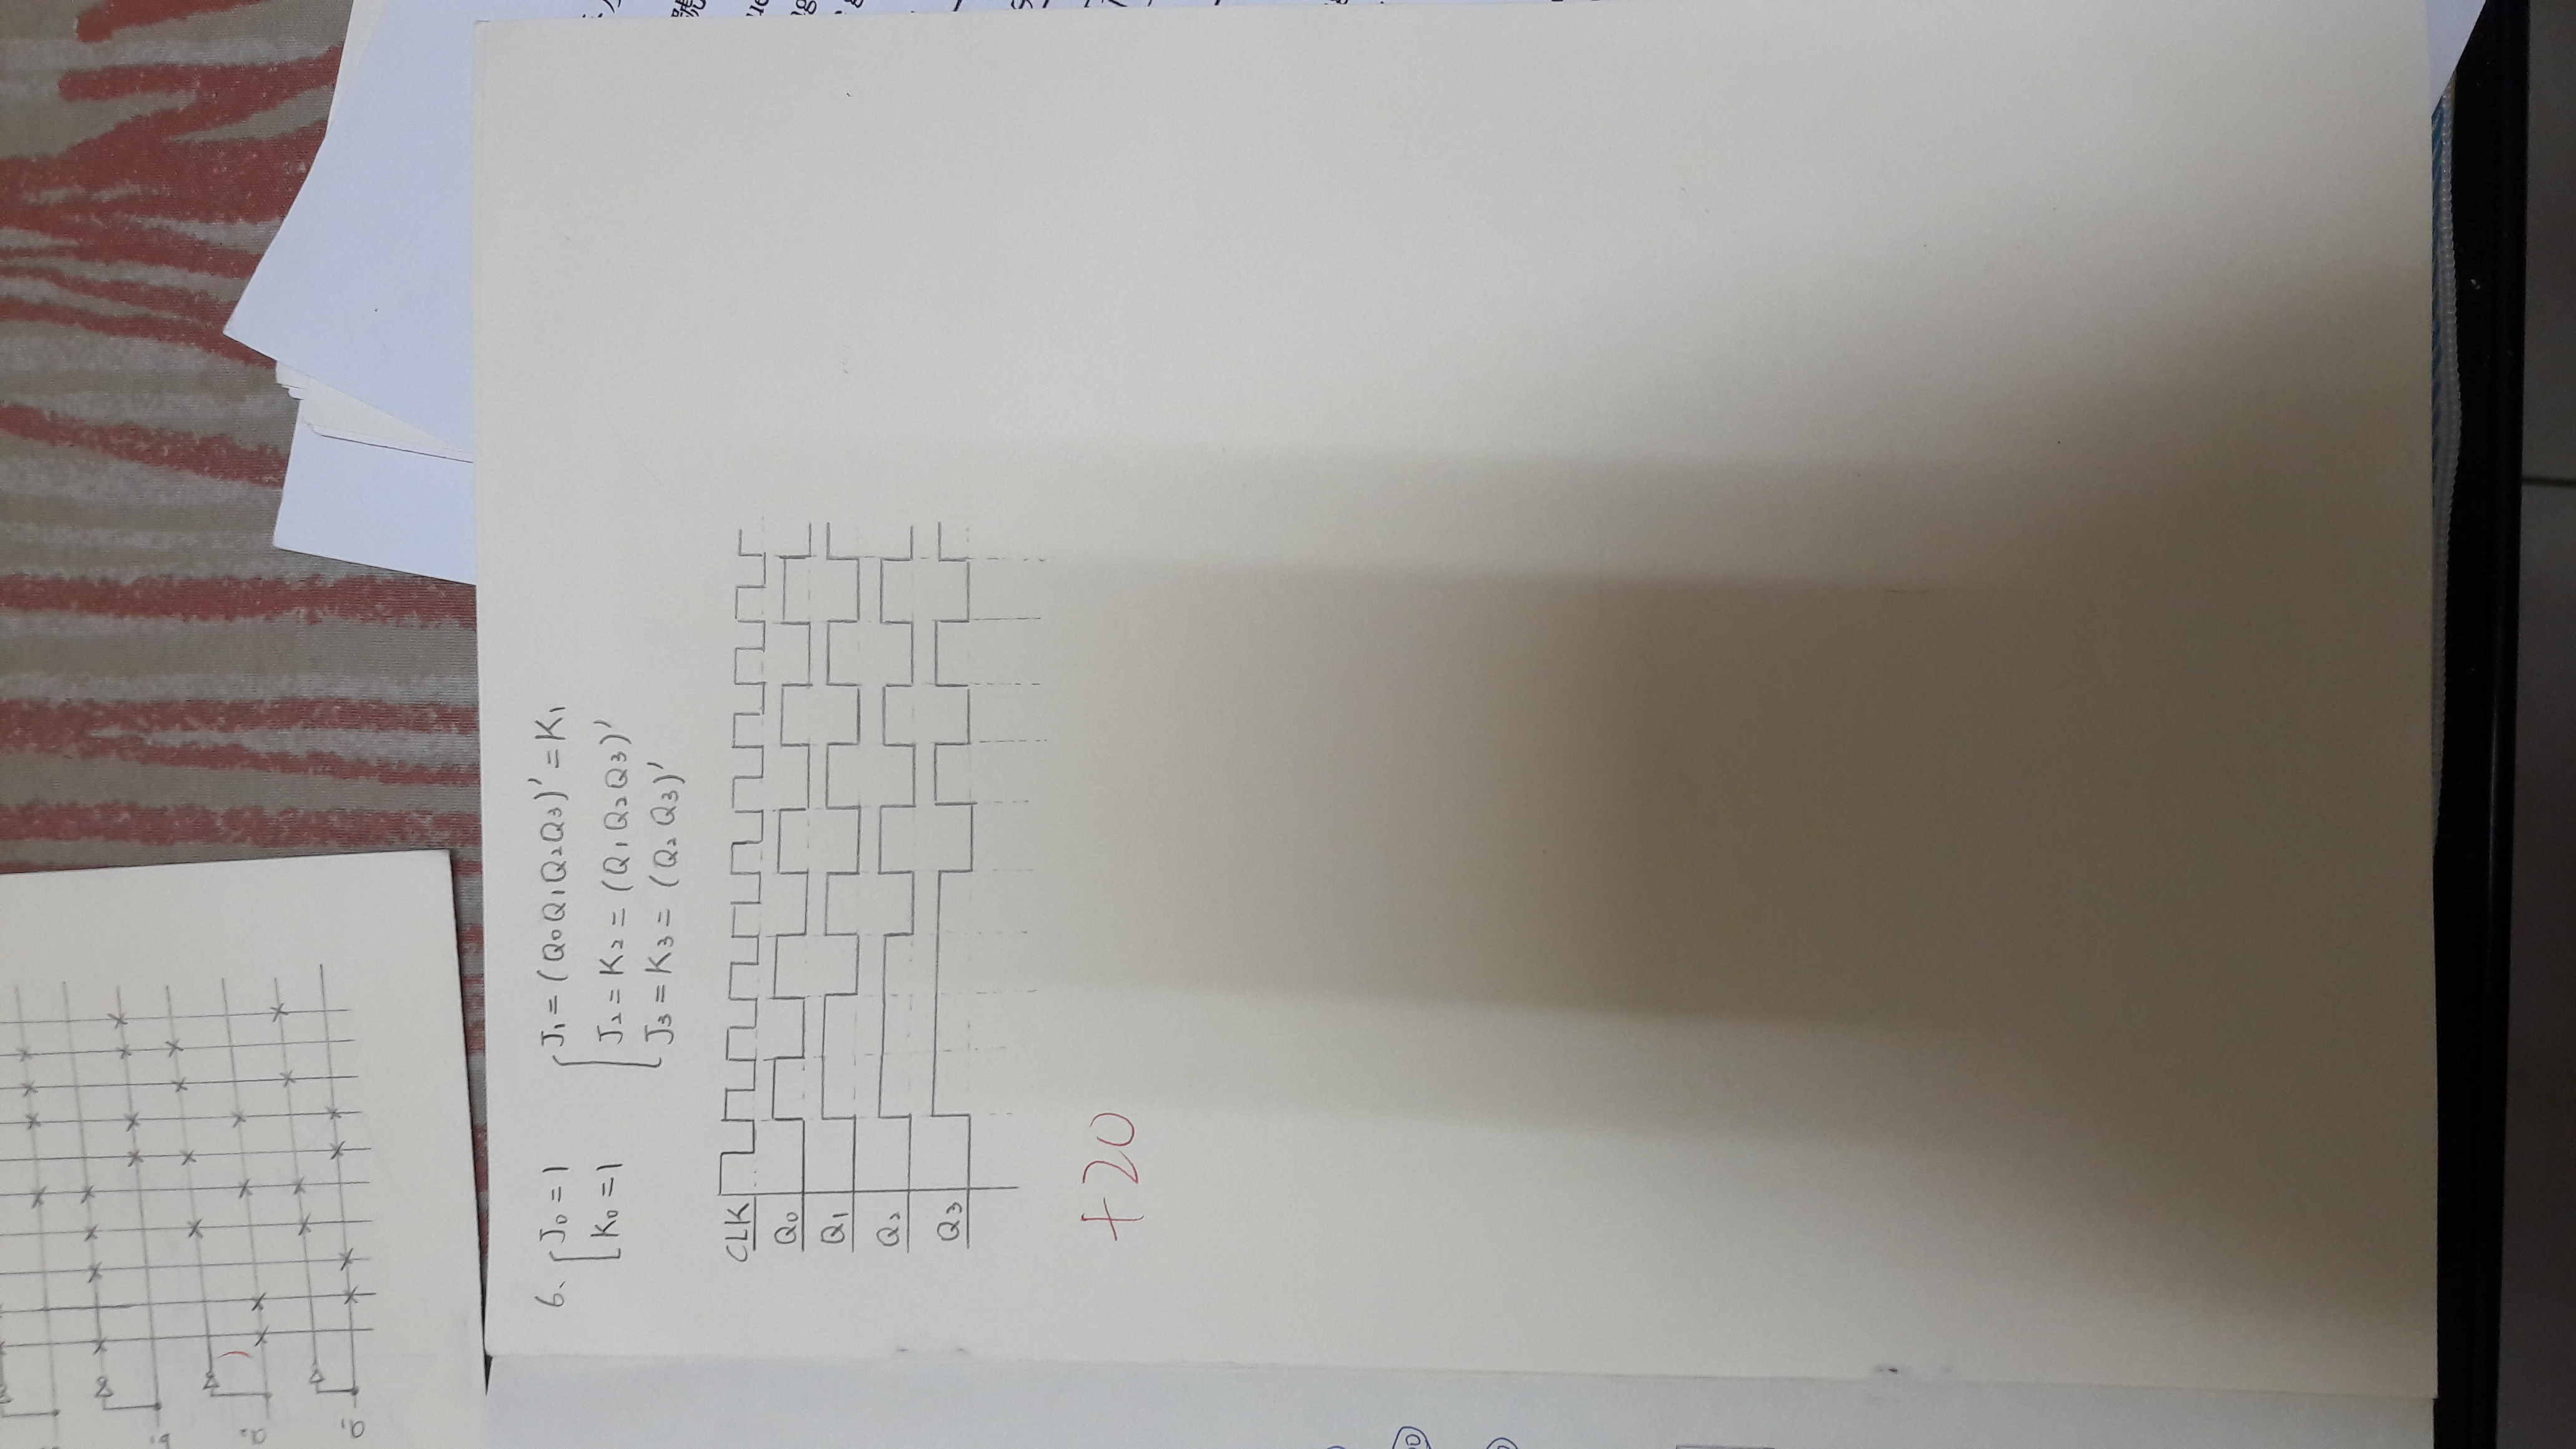 6. J₀ = 1
K₀ = 1
J₁ = (Q₀Q₁Q₂Q₃)' = K₁
J₂ = K₂ = (Q₁Q₂Q₃)'
J₃ = K₃ = (Q₂Q₃)'
CLK
Q₀
Q₁
Q₂
Q₃
+20